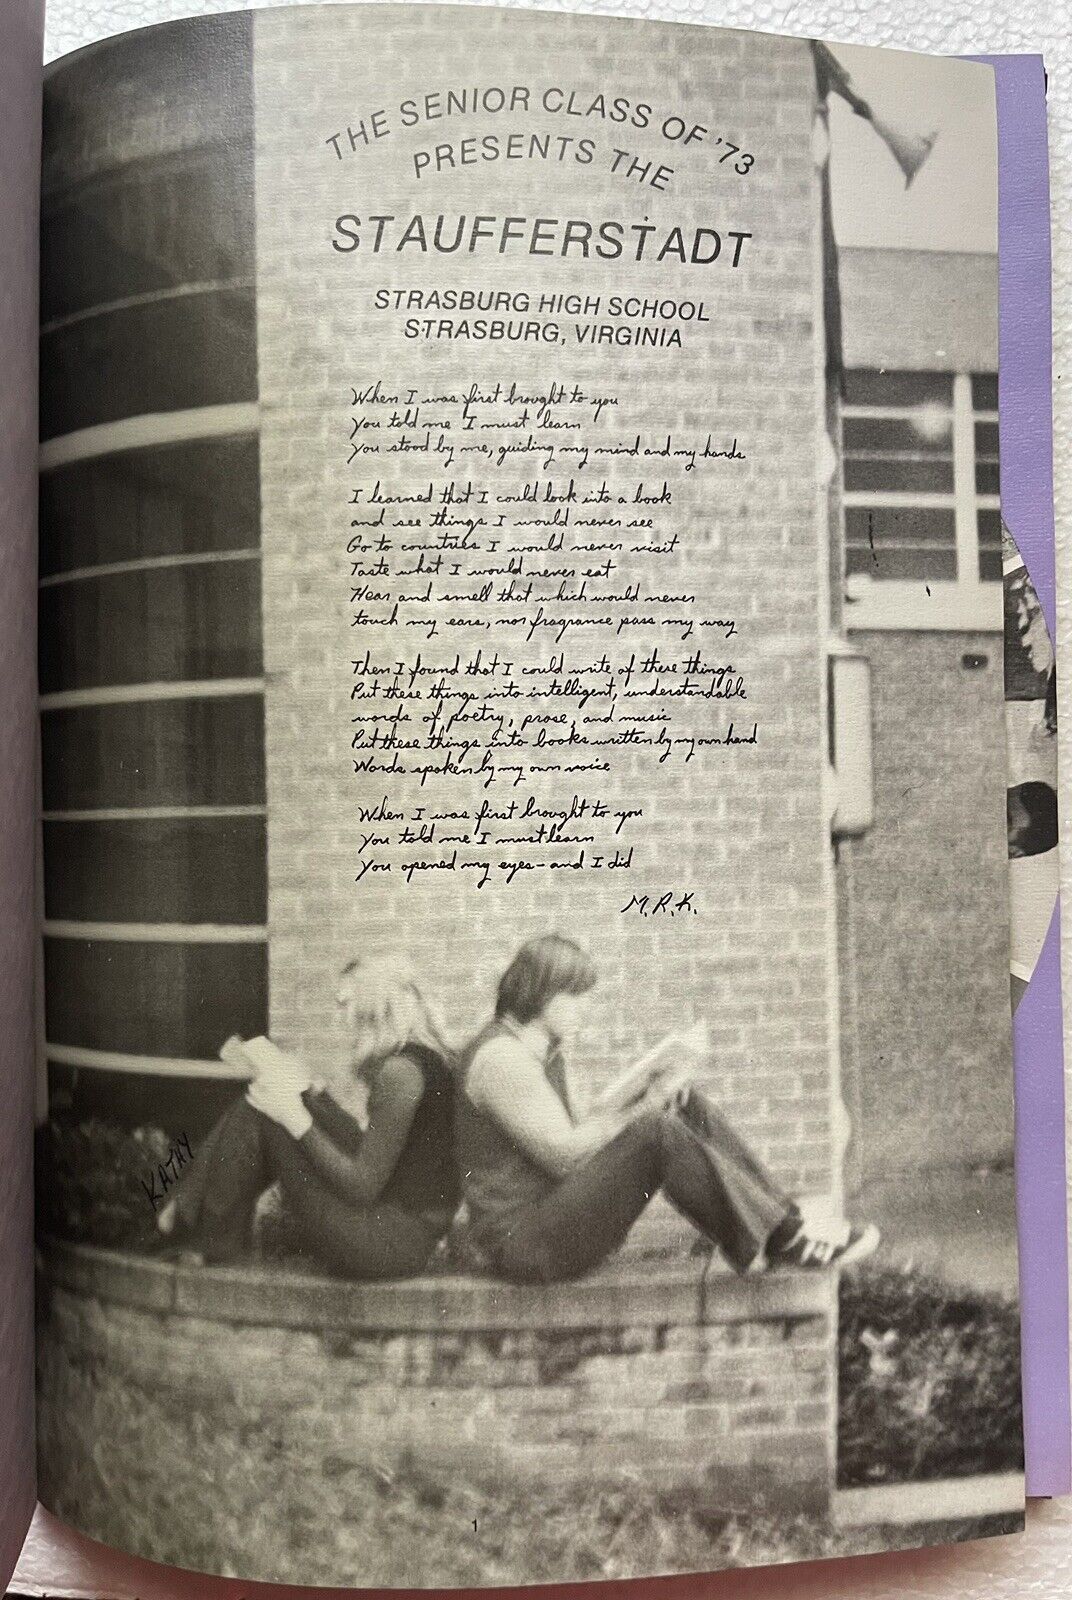 THE SENIOR CLASS OF '73
PRESENTS THE
STAUFFERSTADT
STRASBURG HIGH SCHOOL
STRASBURG, VIRGINIA
When I was first brought to you
You told me I must learn
You stood by me, guiding my mind and my hands
I learned that I could look into a book
and see things I would never see
Go to countries I would never visit
Taste what I would never eat
Hear and smell that which would never
touch my ears, nor fragrance pass my way
Then I found that I could write of these things
Put these things into intelligent, understandable
words of poetry, prose, and music
Put these things into books written by my own hand
Words spoken by my own voice
When I was first brought to you
You told me I must learn
You opened my eyes - and I did
M. R. K.
KATHY
1